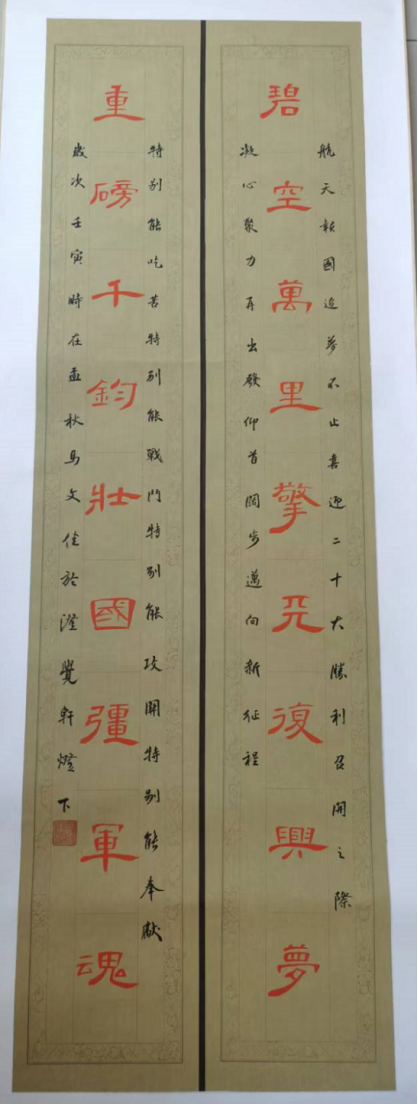 航天報國追夢不止喜迎二十大勝利召開之際
碧空萬里擎天復興夢
凝心聚力再出發仰首闊步邁向新征程
特别能吃苦特别能戰鬥特别能攻關特别能奉獻
重磅千鈞壯國彊軍魂
歲次壬寅時在孟秋馬文佳於澄覺軒燈下